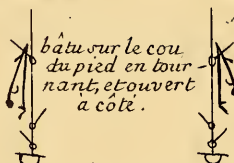 bâtu sur le cou
du pied en tour
nant, et ouvert
à côté.